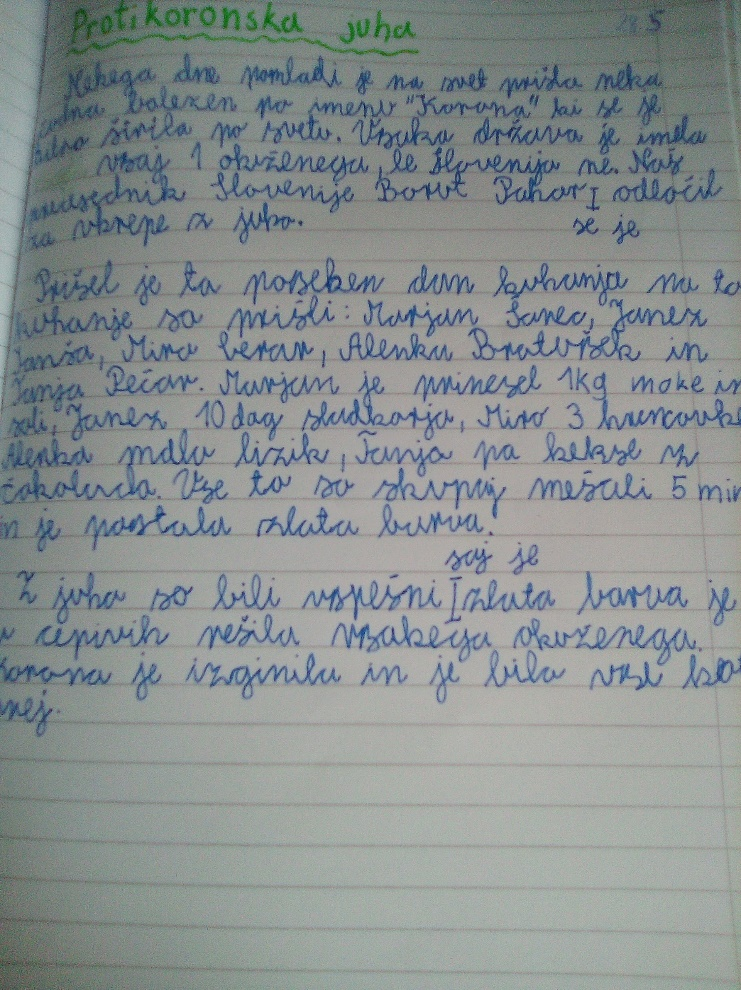 Protikoronska juha
5
Nekega dne pomladi je na svet prišla neka
čudna bolezen po imenu "Korona" ki se je
hitro širila po svetu. Vsaka država je imela
vsaj 1 okuženega, le Slovenija ne. Naš
predsednik Slovenije Borut Pahor I odločil
se je
za ukrepe z juho.
Prišel je ta poseben dan kuhanja na to
kuhanje so prišli: Marjan Šarec, Janez
Janša, Miro Cerar, Alenka Bratušek in
Tanja Fečar. Marjan je prinesel 1kg moke in
soli, Janez 10 dag sladkorja, Miro 3 hrenovke
Alenka malo lizik, Tanja pa kekse z
čokolado. Vse to so skupaj mešali 5 min
in je postala zlata barva.
saj je
Z juho so bili uspešni I zlata barva je
v cepivih rešila vsakega okuženega.
Korona je izginila in je bilo vse kot
prej.